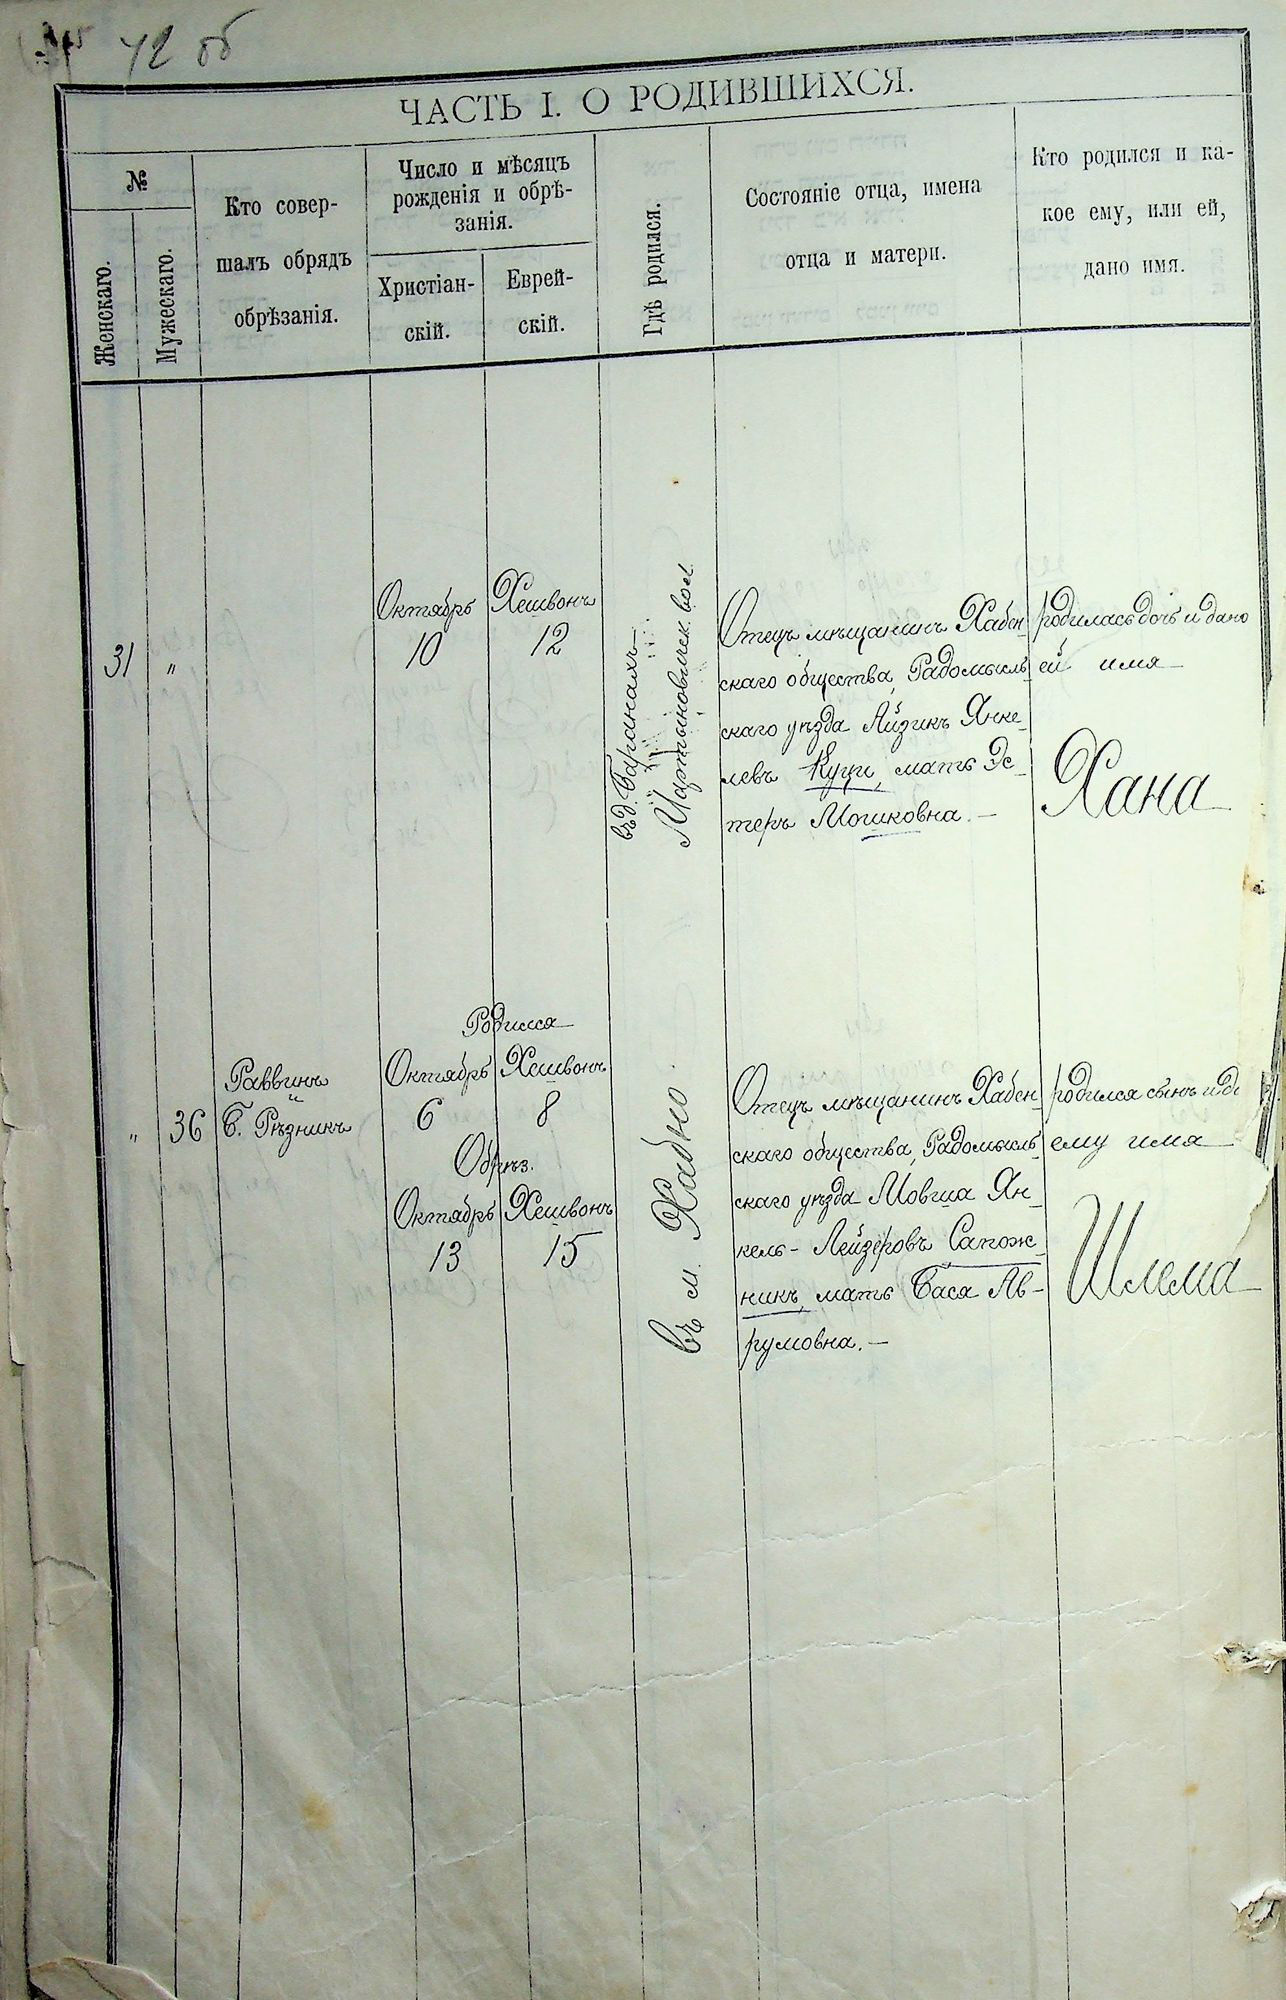 42 об
ЧАСТЬ I. О РОДИВШИХСЯ.
№
Женскаго.
Мужескаго.
Кто совер-
шалъ обрядъ
обрѣзанія.
Число и мѣсяцъ
рожденія и обрѣ-
занія.
Христіан-
скій.
Еврей-
скій.
Гдѣ родился.
Состояніе отца, имена
отца и матери.
Кто родился и ка-
кое ему, или ей,
дано имя.
31
"
Октябрь
10
Хешвонъ
12
въ д. Баранахъ
Мартыновическ. вол.
Отецъ мѣщанинъ Хабен-
скаго общества, Радомысль-
скаго уѣзда Айзикъ Янке-
левъ Куци, мать Эс-
теръ Мошковна. —
родилась дочь и дано
ей имя
Хана
"
36
Раввинъ
Б. Рѣзникъ
Родился
Октябрь
6
Хешвонъ
8
Обрѣз.
Октябрь
13
Хешвонъ
15
въ м. Хабно.
Отецъ мѣщанинъ Хабен-
скаго общества, Радомысль-
скаго уѣзда Мовша Ян-
кель-Лейзеровъ Сапож-
никъ, мать Бася Ав-
румовна. —
родился сынъ и
ему имя
Шлема